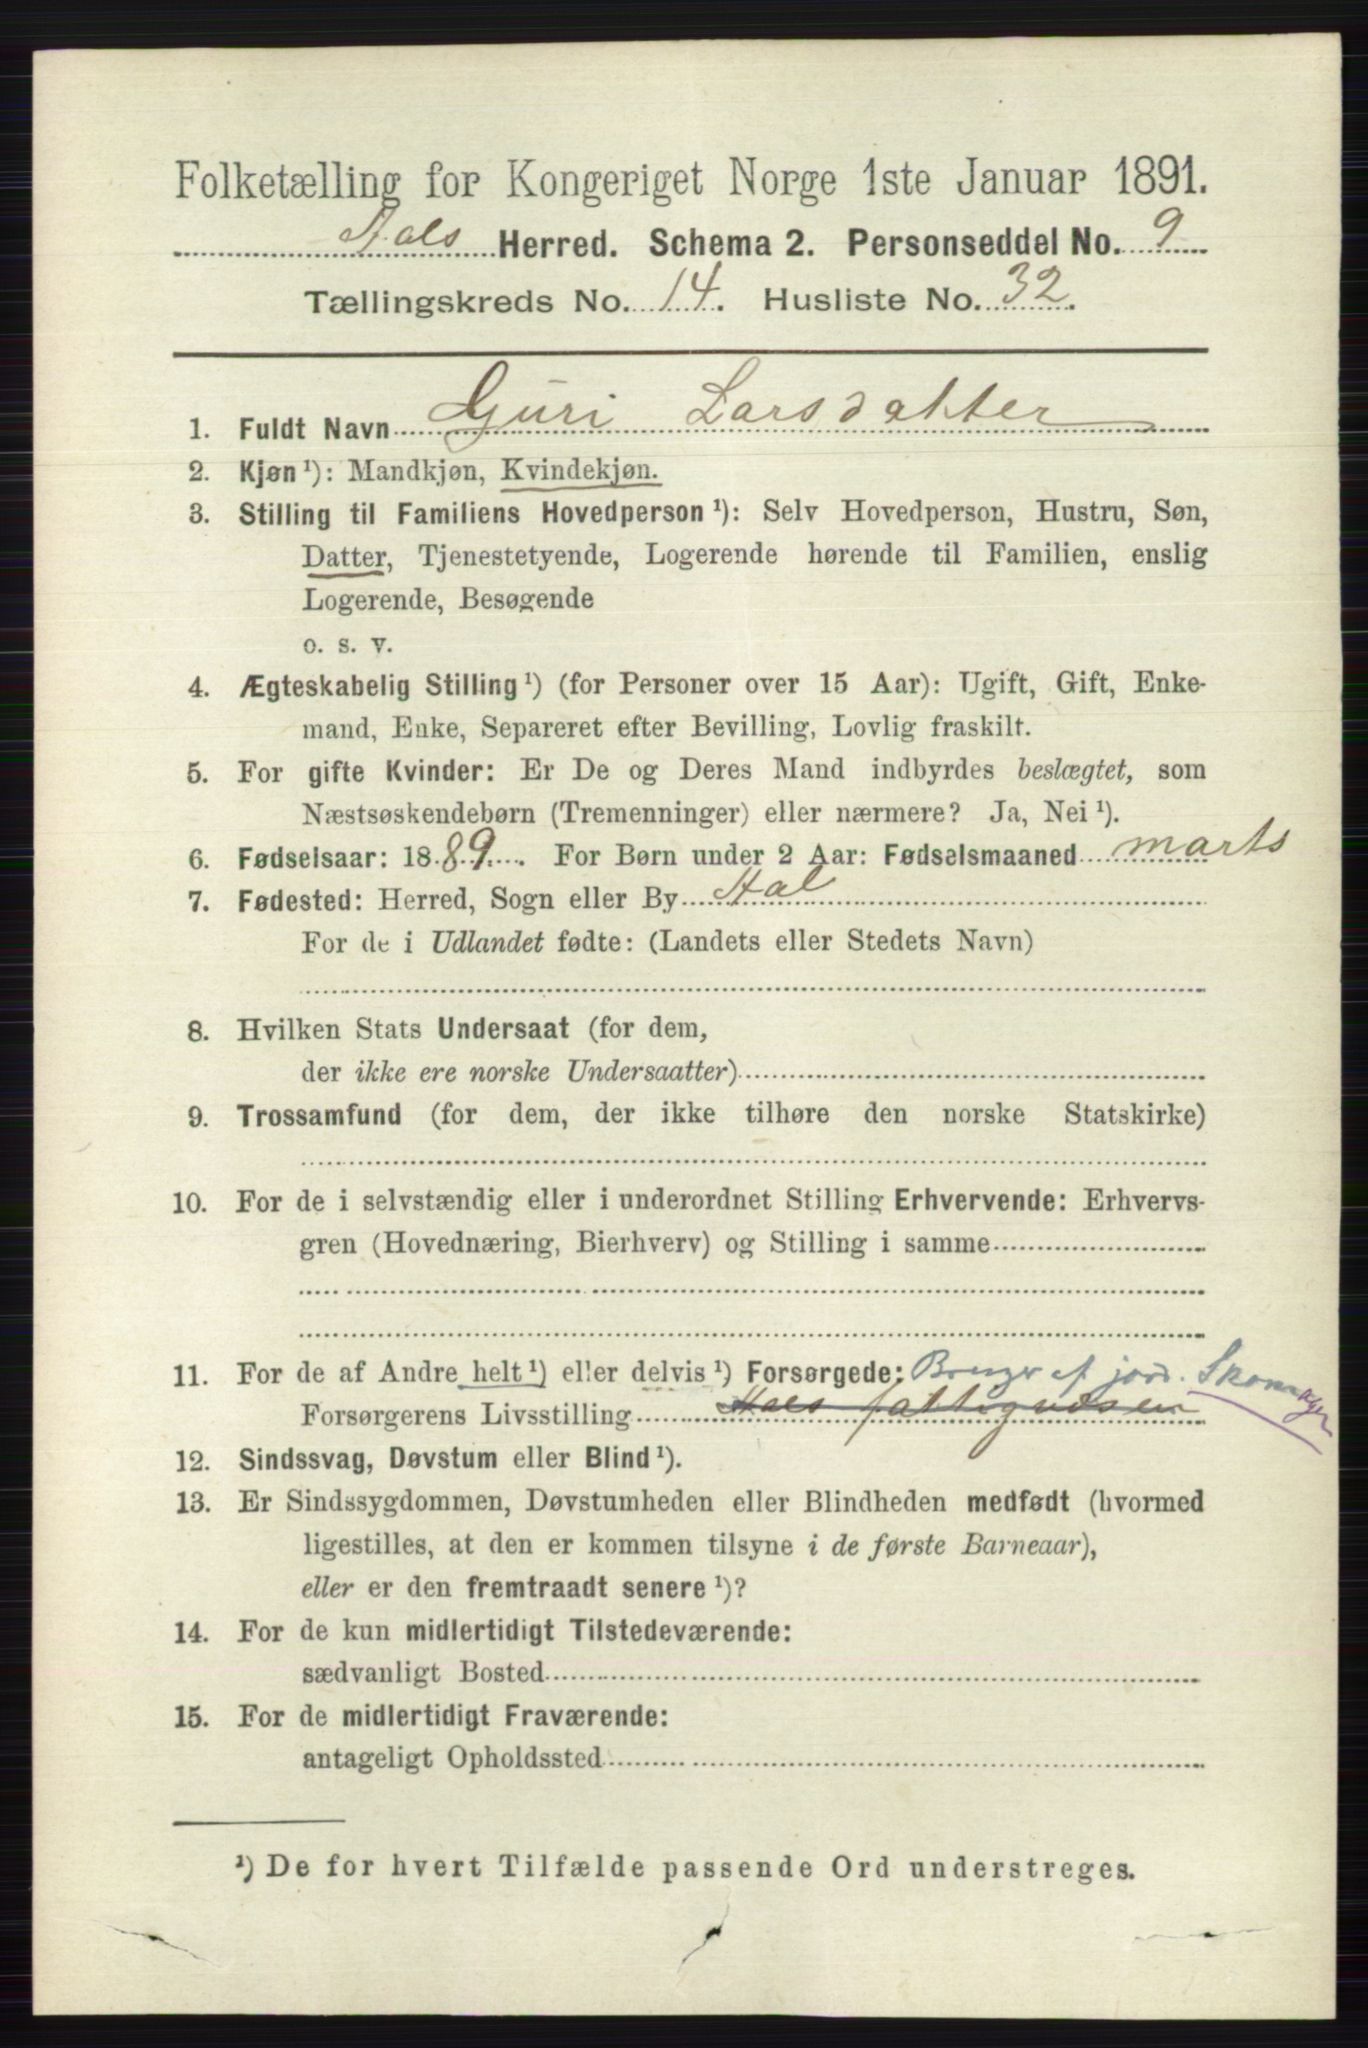 Folketælling for Kongeriget Norge 1ste Januar 1891.
Aals Herred. Schema 2. Personseddel No. 9
Tællingskreds No. 14. Husliste No. 32.
1. Fuldt Navn Guri Larsdatter
2. Kjøn ¹): Mandkjøn, Kvindekjøn.
3. Stilling til Familiens Hovedperson ¹): Selv Hovedperson, Hustru, Søn,
Datter, Tjenestetyende, Logerende hørende til Familien, enslig
Logerende, Besøgende
o. s. v.
4. Ægteskabelig Stilling ¹) (for Personer over 15 Aar): Ugift, Gift, Enke-
mand, Enke, Separeret efter Bevilling, Lovlig fraskilt.
5. For gifte Kvinder: Er De og Deres Mand indbyrdes beslægtet, som
Næstsøskendebørn (Tremenninger) eller nærmere? Ja, Nei ¹).
6. Fødselsaar: 1889. For Børn under 2 Aar: Fødselsmaaned marts
7. Fødested: Herred, Sogn eller By Aal
For de i Udlandet fødte: (Landets eller Stedets Navn)
8. Hvilken Stats Undersaat (for dem,
der ikke ere norske Undersaatter)
9. Trossamfund (for dem, der ikke tilhøre den norske Statskirke)
10. For de i selvstændig eller i underordnet Stilling Erhvervende: Erhvervs-
gren (Hovednæring, Bierhverv) og Stilling i samme
11. For de af Andre helt ¹) eller delvis ¹) Forsørgede: Bruger af jord. Skomager
Forsørgerens Livsstilling Aals fattigvæsen
12. Sindssvag, Døvstum eller Blind ¹).
13. Er Sindssygdommen, Døvstumheden eller Blindheden medfødt (hvormed
ligestilles, at den er kommen tilsyne i de første Barneaar),
eller er den fremtraadt senere ¹)?
14. For de kun midlertidigt Tilstedeværende:
sædvanligt Bosted
15. For de midlertidigt Fraværende:
antageligt Opholdssted
¹) De for hvert Tilfælde passende Ord understreges.